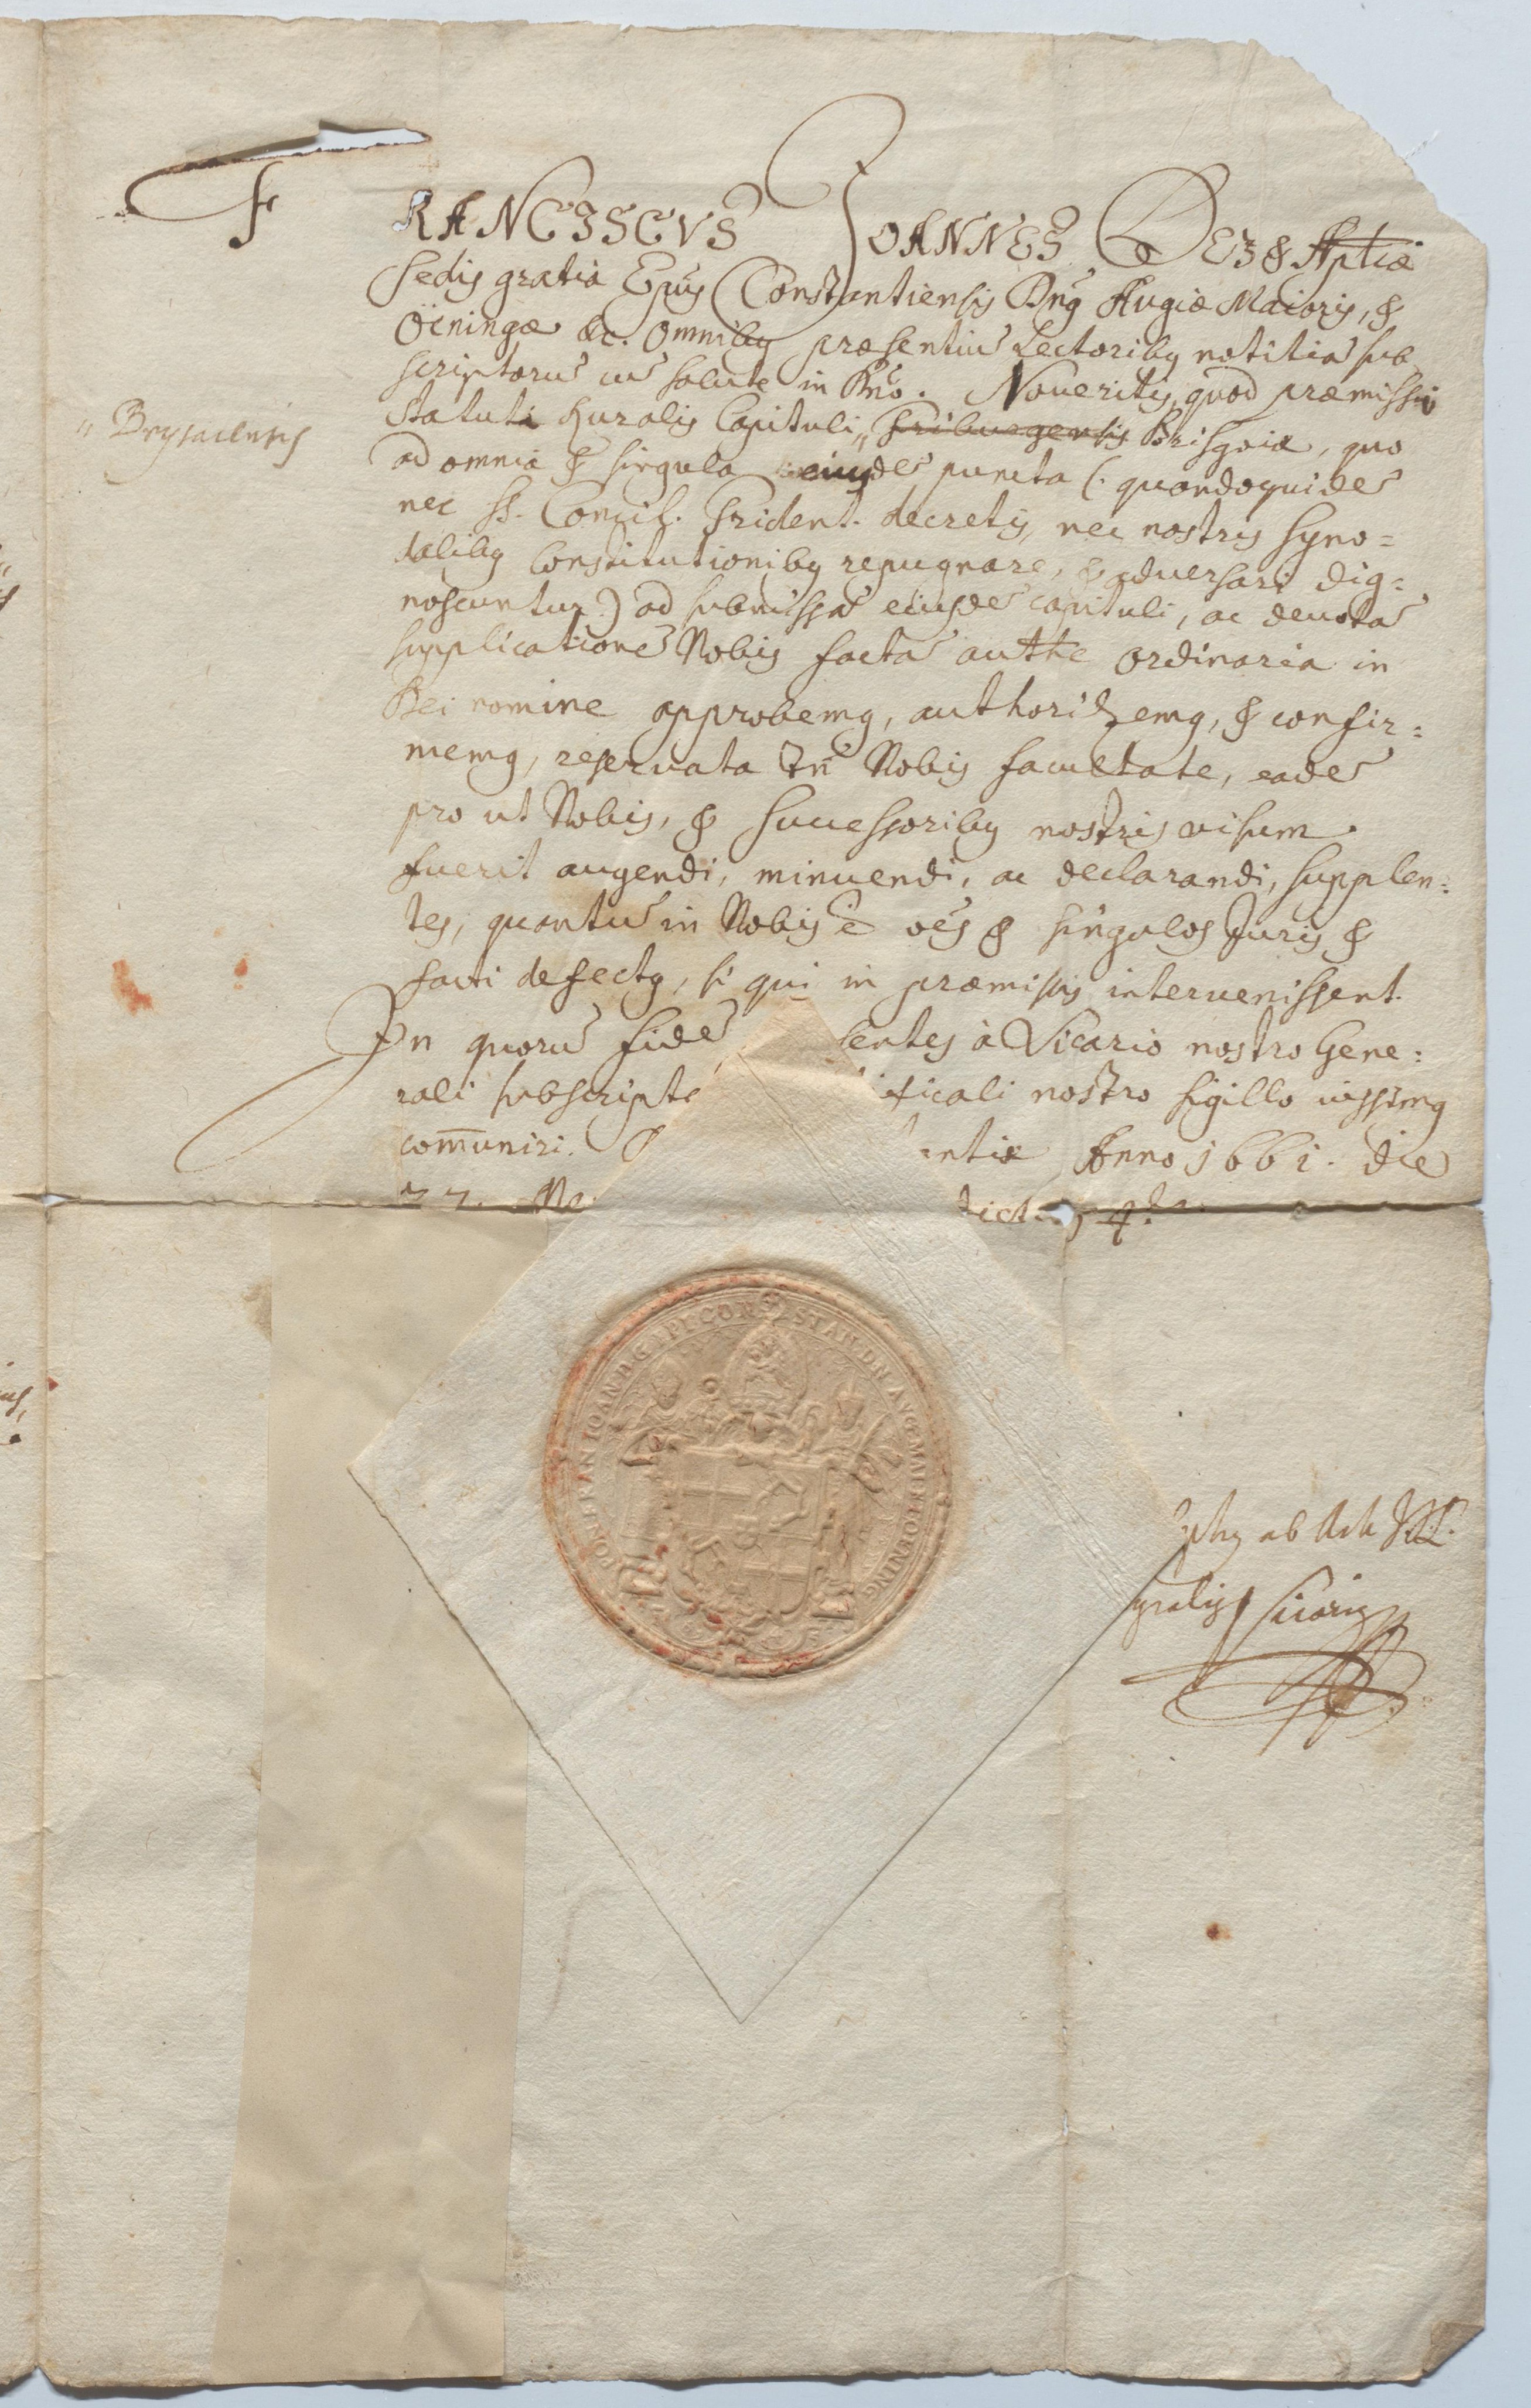 FRANCISCUS IOANNES DEI & Aptcæ
sedis gratia Epus Constantiensis Dnus Augiæ Maioris, &
Öeningæ &c. Omnibus præsentiũ Lectoribus notitiã sub
scriptorũ cũ salute in Dno. Noueritis, quod præmissũ
"Brysacensis
statuti Ruralis Capituli, "Friburgensis Brisgoiæ, quo
ad omnia & singula eiusdẽ puncta (: quandoquidẽ
nec SS. Concil. Trident. decretis, nec nostris syno=
dalibus Constitutionibus repugnare, & aduersari dig=
noscuntur) ad submissã eiusdẽ capituli, ac deuotã
supplicationẽ Nobis factã authe ordinaria in
Dei nomine approbemus, authorizemus, & confir=
memus, reseruata tñ Nobis facultate, eadẽ
pro ut Nobis, & successoribus nostris visum
fuerit augendi, minuendi, ac declarandi, supplen=
tes, quantũ in Nobis ẽ oẽs & singulos Juris &
facti defectus, si qui in præmissis interuenissent.
In quorũ fidẽ sentes à Vicario nostro Gene=
rali subscripte ticali nostro sigillo iussimus
com̃uniri. antiæ Anno 1661. die
dict
PONT FRAN IOAN D G EPI CONSTAN DN AUGÆ MAI ET OENING
ab
gralis Vicarius